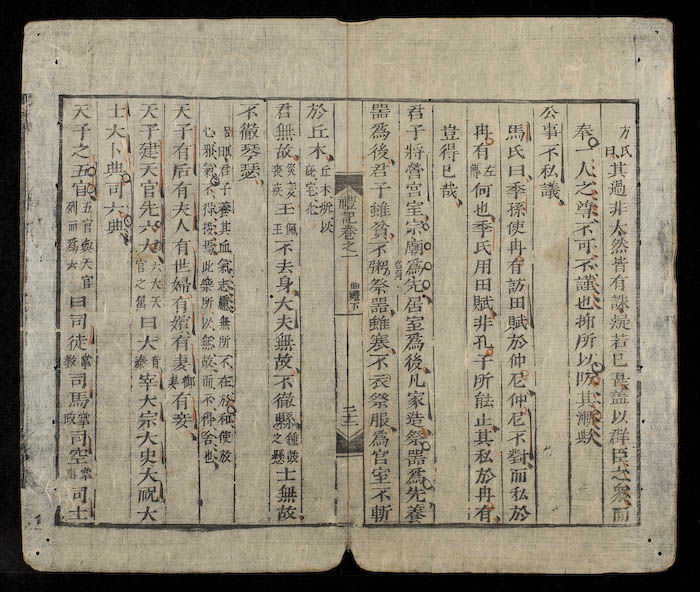 方氏曰其過非大然皆有誅疑若已甚蓋以群臣之衆而
奉一人之尊不可不謹也抑所以防其漸歟
公事不私議
馬氏曰季孫使冉有訪田賦於仲尼仲尼不對而私於
冉有左傳何也季氏用田賦非孔子所能止其私於冉有
豈得已哉
君子將營宮室宗廟爲先居室爲後凡家造祭器爲先養
器爲後君子雖貧不粥祭器雖寒不衣祭服爲宮室不斬
禮記卷之一 曲禮下
於丘木丘木所以庇宅兆
君無故災變喪疾玉佩玉不去身大夫無故不徹縣鐘鼓之懸士無故
不徹琴瑟
呂曰君子養其血氣志慮無所不在於和使放
心邪氣不得接焉此樂所以無故而不得舍也
天子有后有夫人有世婦有嬪有妻御妻有妾
天子建天官先六大六大天官之屬曰大音泰宰大宗大史大祝大
士大卜典司六典
天子之五官五官與天官列而爲六曰司徒掌教司馬掌政司空掌事司士